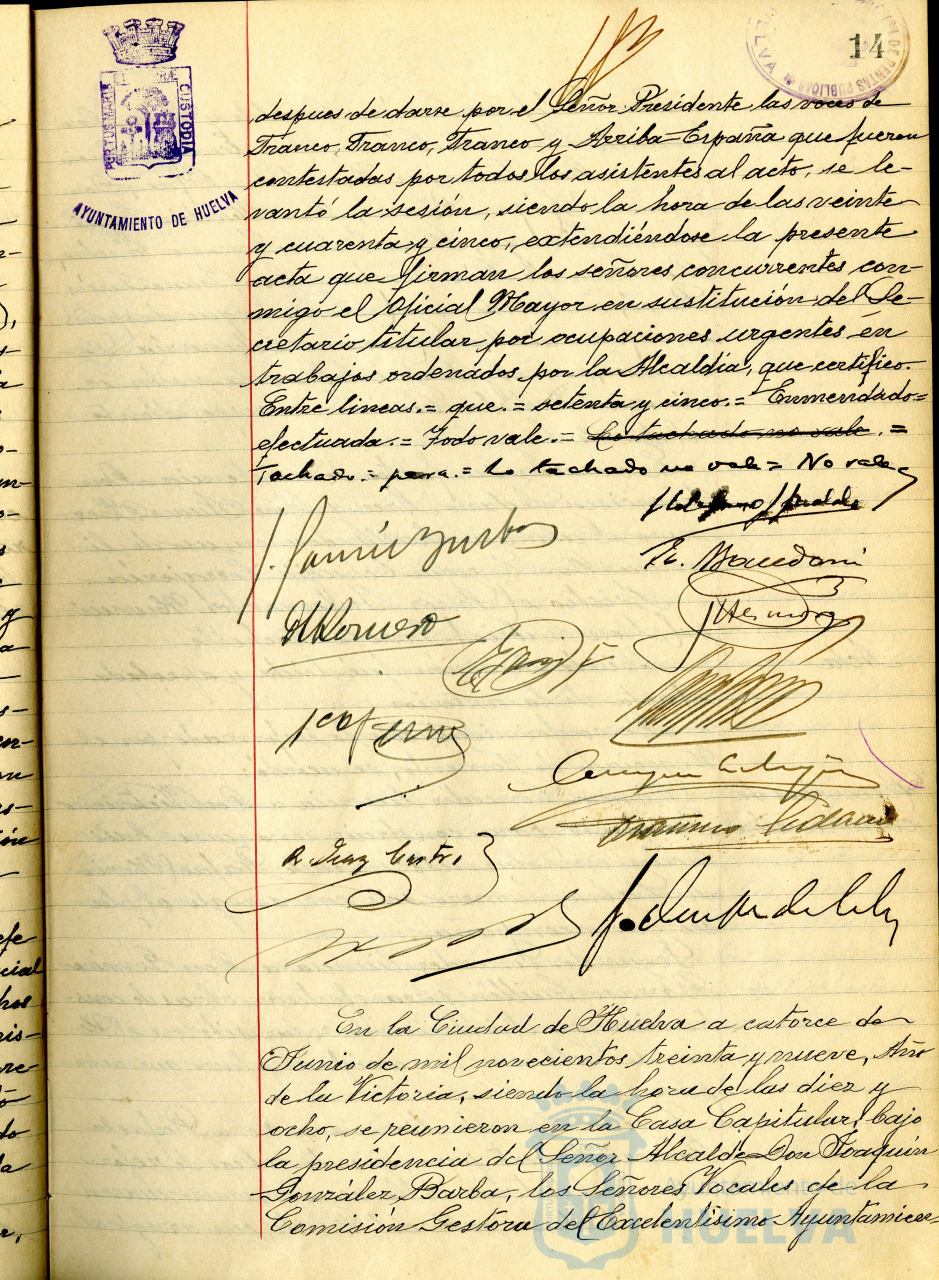 14
PORTUS MARIS
CUSTODIA
AYUNTAMIENTO DE HUELVA
despues de darse por el Señor Presidente las voces de
Franco, Franco, Franco y Arriba España que fueron
contestadas por todos los asistentes al acto, se le-
vantó la sesión, siendo la hora de las veinte
y cuarenta y cinco, extendiéndose la presente
acta que firman los señores concurrentes con-
migo el Oficial Mayor en sustitución del Se-
cretario titular por ocupaciones urgentes en
trabajos ordenados por la Alcaldía, que certifico.
Entre lineas.= que.= setenta y cinco.= Enmendado=
efectuada.= Todo vale.= Lo tachado no vale.=
Tachado.= para.= Lo tachado no vale= No vale
H Romero
R. Diaz
En la Ciudad de Huelva a catorce de
Junio de mil novecientos treinta y nueve, Año
de la Victoria, siendo la hora de las diez y
ocho, se reunieron en la Casa Capitular, bajo
la presidencia del Señor Alcalde Don Joaquín
González Barba, los Señores Vocales de la
Comisión Gestora del Excelentísimo Ayuntamien-
Ayuntamiento de
HUELVA